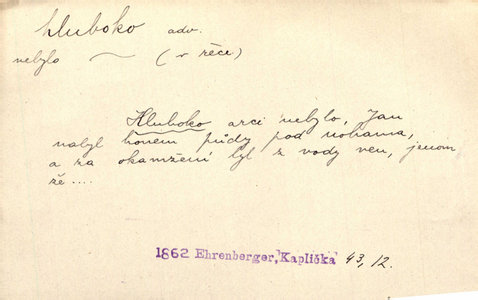 hluboko adv.
nebylo ~ (v řěce)
Hluboko arci nebylo, Jan
nabyl honem půdy pod nohama,
a za okamžení byl z vody ven, jenom
že....
1862 Ehrenberger, Kaplička 43, 12.